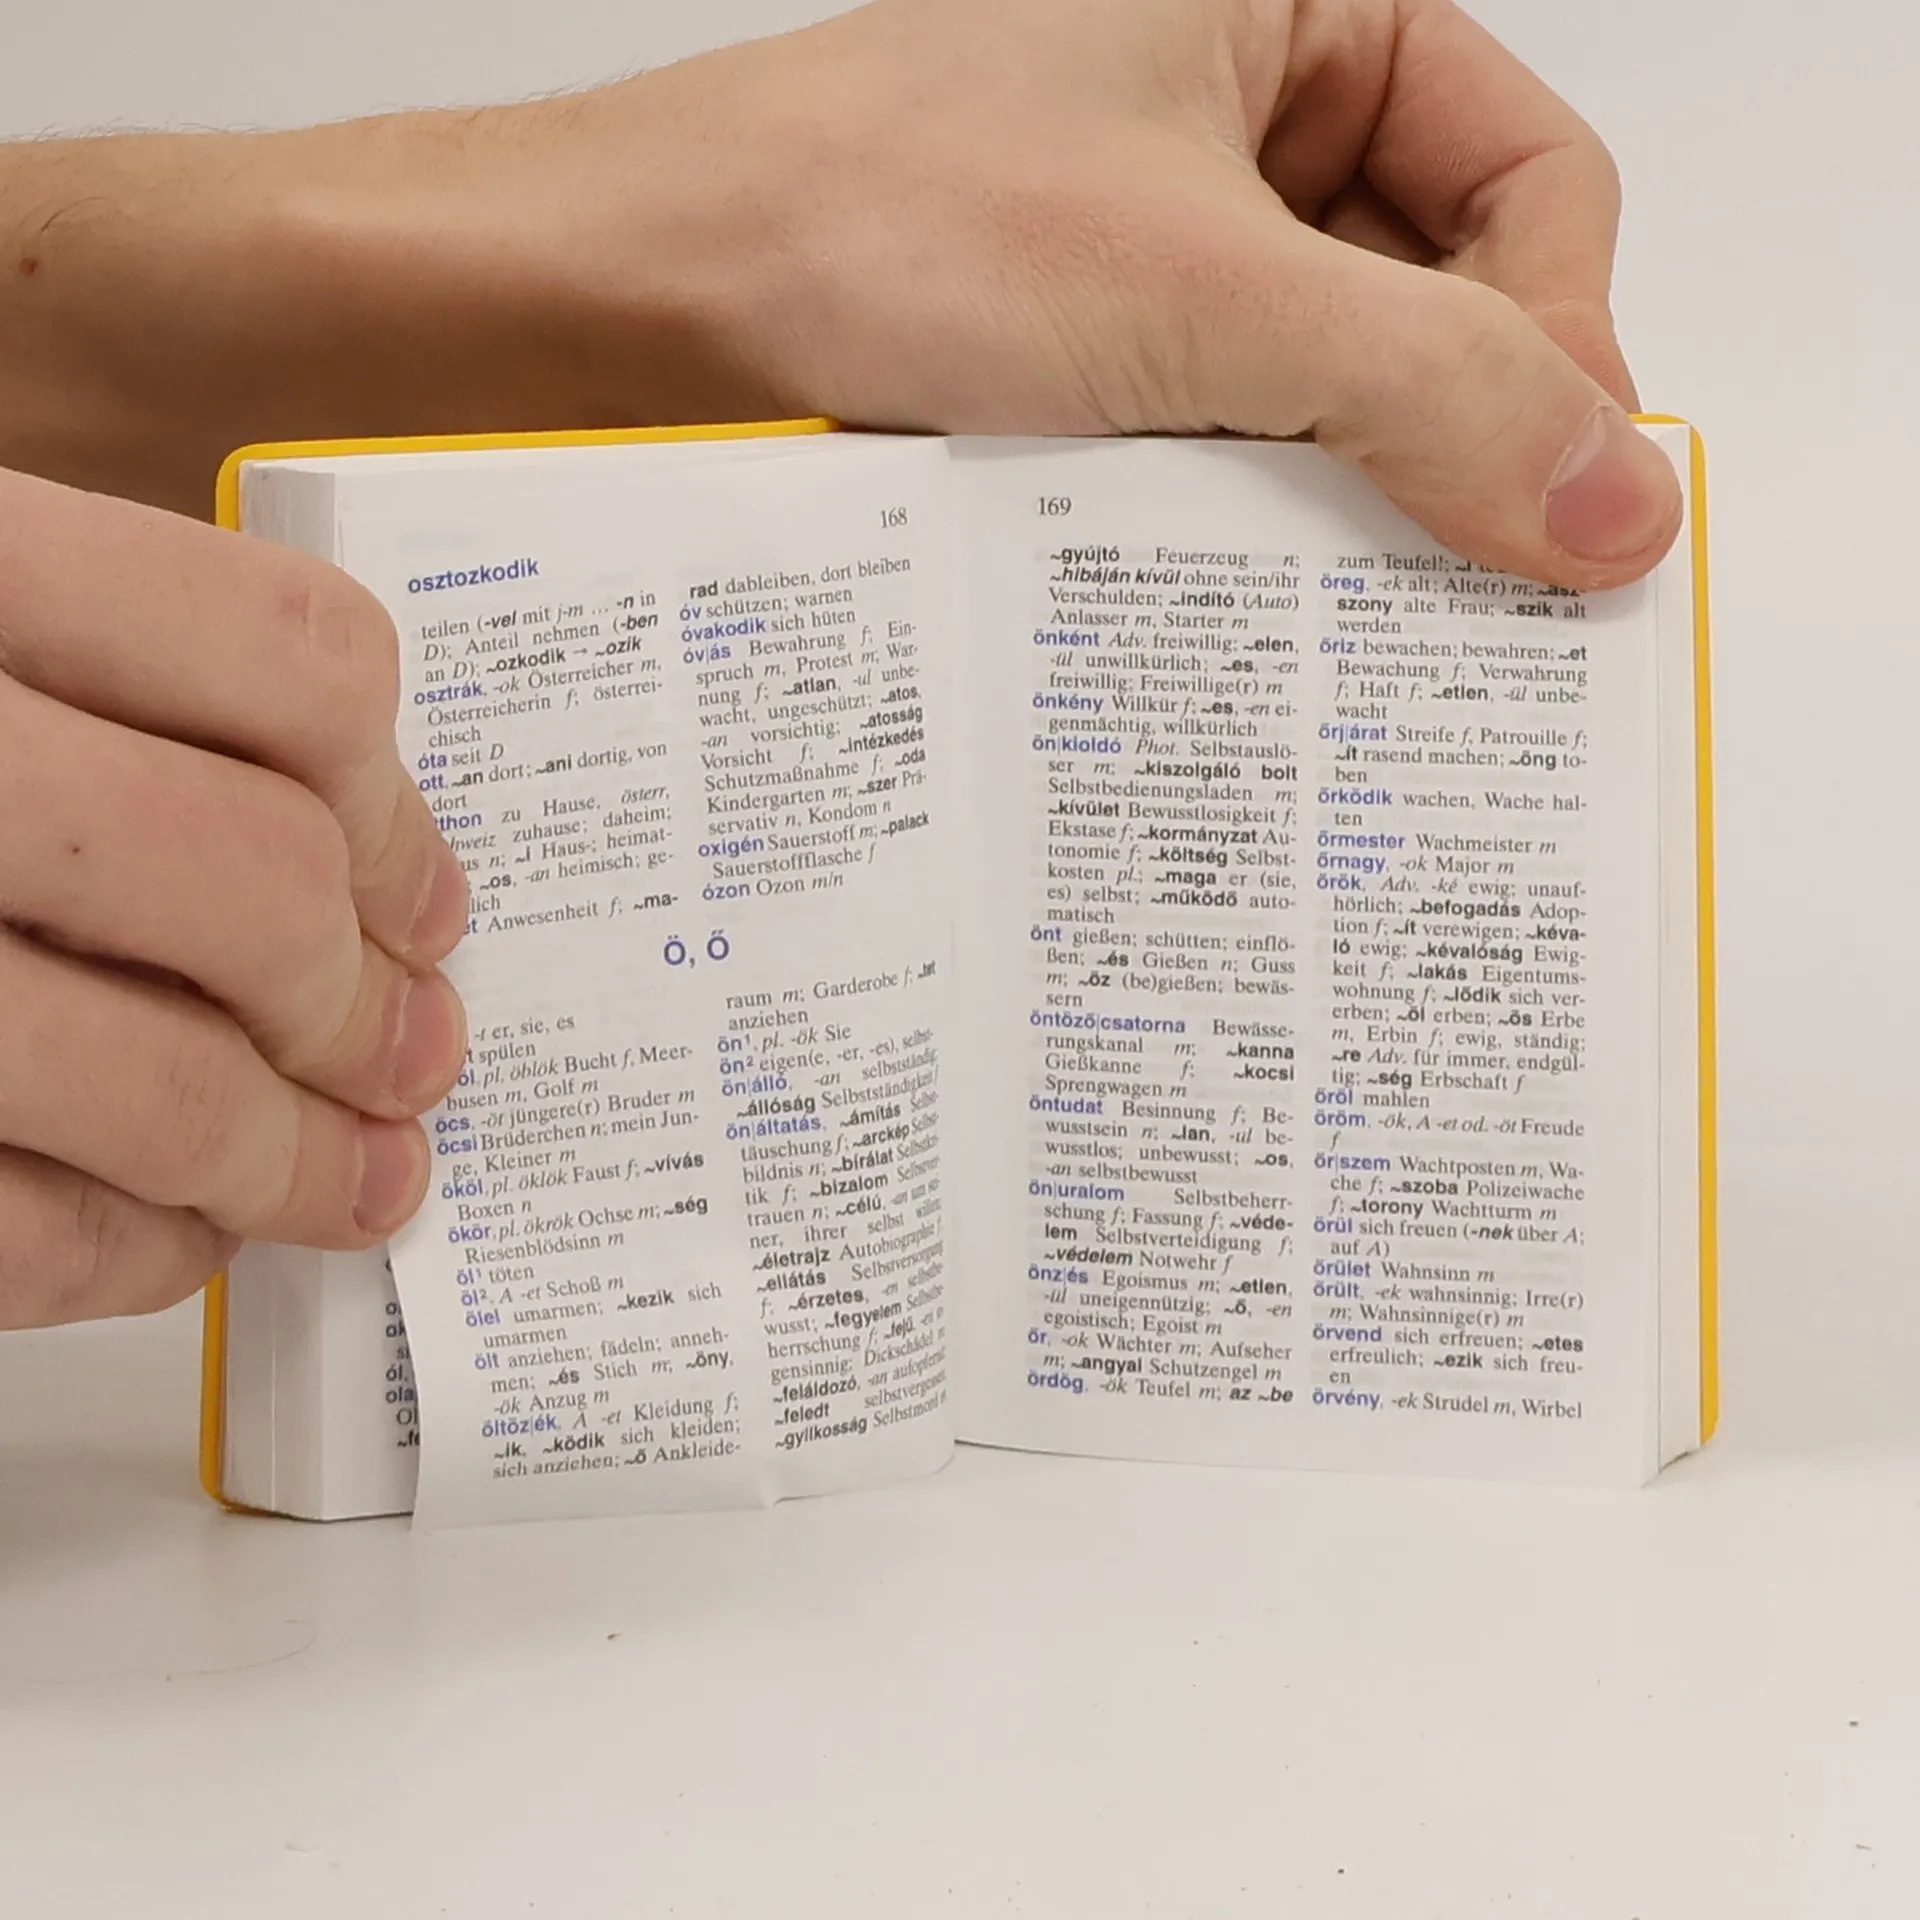 168
osztozkodik
teilen (-vel mit j-m ... -n in
D); Anteil nehmen (-ben
an D); ~ozkodik → ~ozik
osztrák, -ok Österreicher m,
Österreicherin f; österrei-
chisch
óta seit D
ott, ~an dort; ~ani dortig, von
dort
zu Hause, österr,
zuhause; daheim;
n; ~i Haus-; heimat-
~os, -an heimisch; ge-
Anwesenheit f; ~ma-
rad dableiben, dort bleiben
óv schützen; warnen
óvakodik sich hüten
óv|ás Bewahrung f; Ein-
spruch m, Protest m; War-
nung f; ~atlan, -ul unbe-
wacht, ungeschützt; ~atos,
-an vorsichtig; ~atosság
Vorsicht f; ~intézkedés
Schutzmaßnahme f; ~oda
Kindergarten m; ~szer Prä-
servativ n, Kondom n
oxigén Sauerstoff m; ~palack
Sauerstoffflasche f
ózon Ozon m/n
Ö, Ő
-t er, sie, es
spülen
pl. öblök Bucht f, Meer-
busen m, Golf m
öcs, -öt jüngere(r) Bruder m
öcsi Brüderchen n; mein Jun-
ge, Kleiner m
ököl, pl. öklök Faust f; ~vívás
Boxen n
ökör, pl. ökrök Ochse m; ~ség
Riesenblödsinn m
öl¹ töten
öl², A -et Schoß m
ölel umarmen; ~kezik sich
umarmen
ölt anziehen; fädeln; anneh-
men; ~és Stich m; ~öny,
-ök Anzug m
öltöz|ék, A -et Kleidung f;
~ik, ~ködik sich kleiden;
sich anziehen; ~ő Ankleide-
raum m; Garderobe f; ~tet
anziehen
ön¹, pl. -ök Sie
ön² eigen(e, -er, -es), selbst-
ön|álló, -an selbstständig;
~állóság Selbstständigkeit f
ön|áltatás, ~ámítás Selbst-
täuschung f; ~arckép Selbst-
bildnis n; ~bírálat Selbstkri-
tik f; ~bizalom Selbstver-
trauen n; ~célú, -an um sei-
ner, ihrer selbst willen;
~életrajz Autobiographie f
~ellátás Selbstversorgung
f; ~érzetes, -en selbstbe-
wusst; ~fegyelem Selbstbe-
herrschung f; ~fejű, -en ei-
gensinnig; Dickschädel m
~feláldozó, -an aufopfernd
~feledt selbstvergessen
~gyilkosság Selbstmord m
169
~gyújtó Feuerzeug n;
~hibáján kívül ohne sein/ihr
Verschulden; ~indító (Auto)
Anlasser m, Starter m
önként Adv. freiwillig; ~elen,
-ül unwillkürlich; ~es, -en
freiwillig; Freiwillige(r) m
önkény Willkür f; ~es, -en ei-
genmächtig, willkürlich
ön|kioldó Phot. Selbstauslö-
ser m; ~kiszolgáló bolt
Selbstbedienungsladen m;
~kívület Bewusstlosigkeit f;
Ekstase f; ~kormányzat Au-
tonomie f; ~költség Selbst-
kosten pl.; ~maga er (sie,
es) selbst; ~működő auto-
matisch
önt gießen; schütten; einflö-
ßen; ~és Gießen n; Guss
m; ~öz (be)gießen; bewäs-
sern
öntöző|csatorna Bewässe-
rungskanal m; ~kanna
Gießkanne f; ~kocsi
Sprengwagen m
öntudat Besinnung f; Be-
wusstsein n; ~lan, -ul be-
wusstlos; unbewusst; ~os,
-an selbstbewusst
ön|uralom Selbstbeherr-
schung f; Fassung f; ~véde-
lem Selbstverteidigung f;
~védelem Notwehr f
önz|és Egoismus m; ~etlen,
-ül uneigennützig; ~ő, -en
egoistisch; Egoist m
őr, -ok Wächter m; Aufseher
m; ~angyal Schutzengel m
ördög, -ök Teufel m; az ~be
zum Teufel!;
öreg, -ek alt; Alte(r) m; ~asz-
szony alte Frau; ~szik alt
werden
őriz bewachen; bewahren; ~et
Bewachung f; Verwahrung
f; Haft f; ~etlen, -ül unbe-
wacht
őrj|árat Streife f, Patrouille f;
~ít rasend machen; ~öng to-
ben
őrködik wachen, Wache hal-
ten
őrmester Wachmeister m
őrnagy, -ok Major m
örök, Adv. -ké ewig; unauf-
hörlich; ~befogadás Adop-
tion f; ~ít verewigen; ~kéva-
ló ewig; ~kévalóság Ewig-
keit f; ~lakás Eigentums-
wohnung f; ~lődik sich ver-
erben; ~öl erben; ~ös Erbe
m, Erbin f; ewig, ständig;
~re Adv. für immer, endgül-
tig; ~ség Erbschaft f
őröl mahlen
öröm, -ök, A -et od. -öt Freude
f
őr|szem Wachtposten m, Wa-
che f; ~szoba Polizeiwache
f; ~torony Wachtturm m
örül sich freuen (-nek über A;
auf A)
őrület Wahnsinn m
őrült, -ek wahnsinnig; Irre(r)
m; Wahnsinnige(r) m
örvend sich erfreuen; ~etes
erfreulich; ~ezik sich freu-
en
örvény, -ek Strudel m, Wirbel